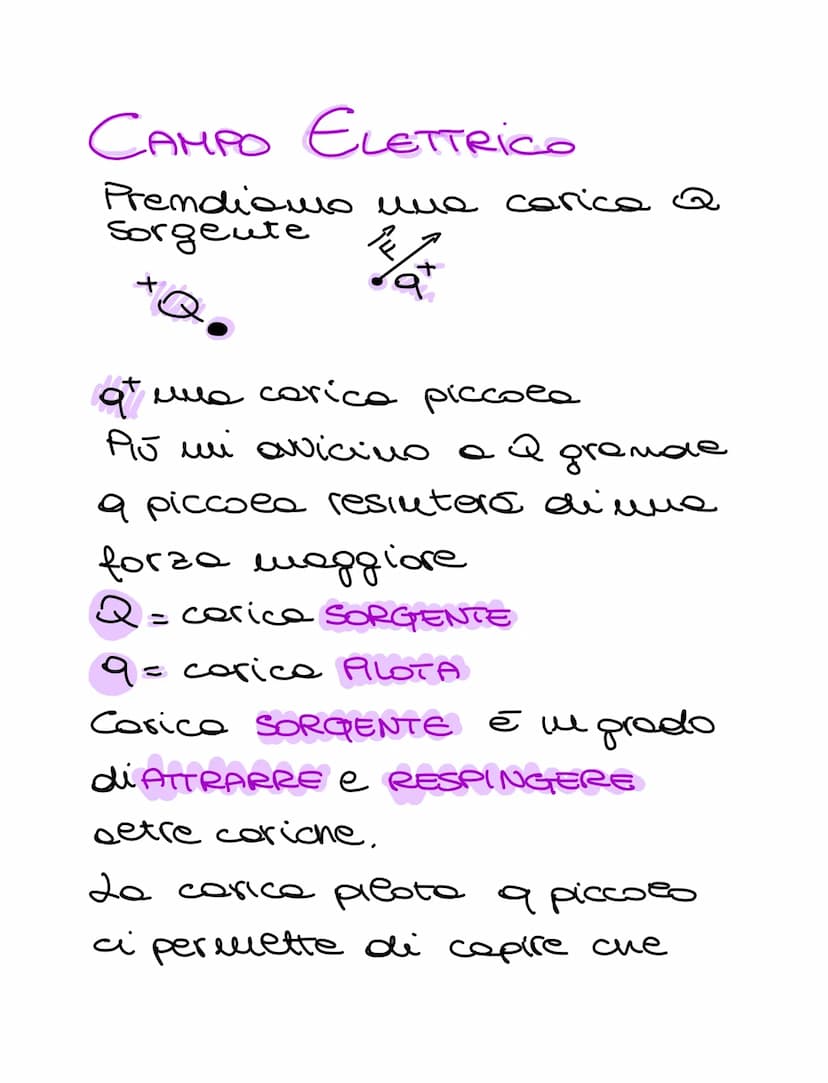 CAMPO ELETTRICO
Prendiamo una carica Q
sorgente
F
q+
+Q
q+ una carica piccola
Più mi avvicino a Q grande
q piccola risulterà di una
forza maggiore
Q = carica SORGENTE
q = carica PILOTA
Carica SORGENTE è in grado
di ATTRARRE e RESPINGERE
altre cariche.
La carica pilota q piccolo
ci permette di capire che